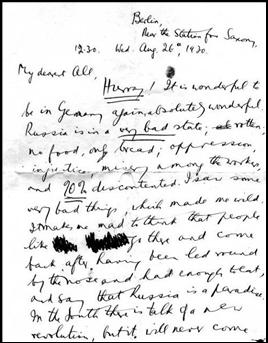 Berlin,
Near the Station for Saxony,
12.30. Wed. Aug. 26th, 1930.
My dearest All,
Hurray! It is wonderful to
be in Germany again, absolutely wonderful.
Russia is in a very bad state; rotten,
no food, only bread; oppression,
injustice, misery among the workers,
and 90% discontented. I saw some
very bad things, which made me wild.
It makes me mad to think that people
like go there and come
back, after having been led round
by the nose and had enough to eat,
and say that Russia is a paradise.
In the South there is talk of a new
revolution, but it will never come